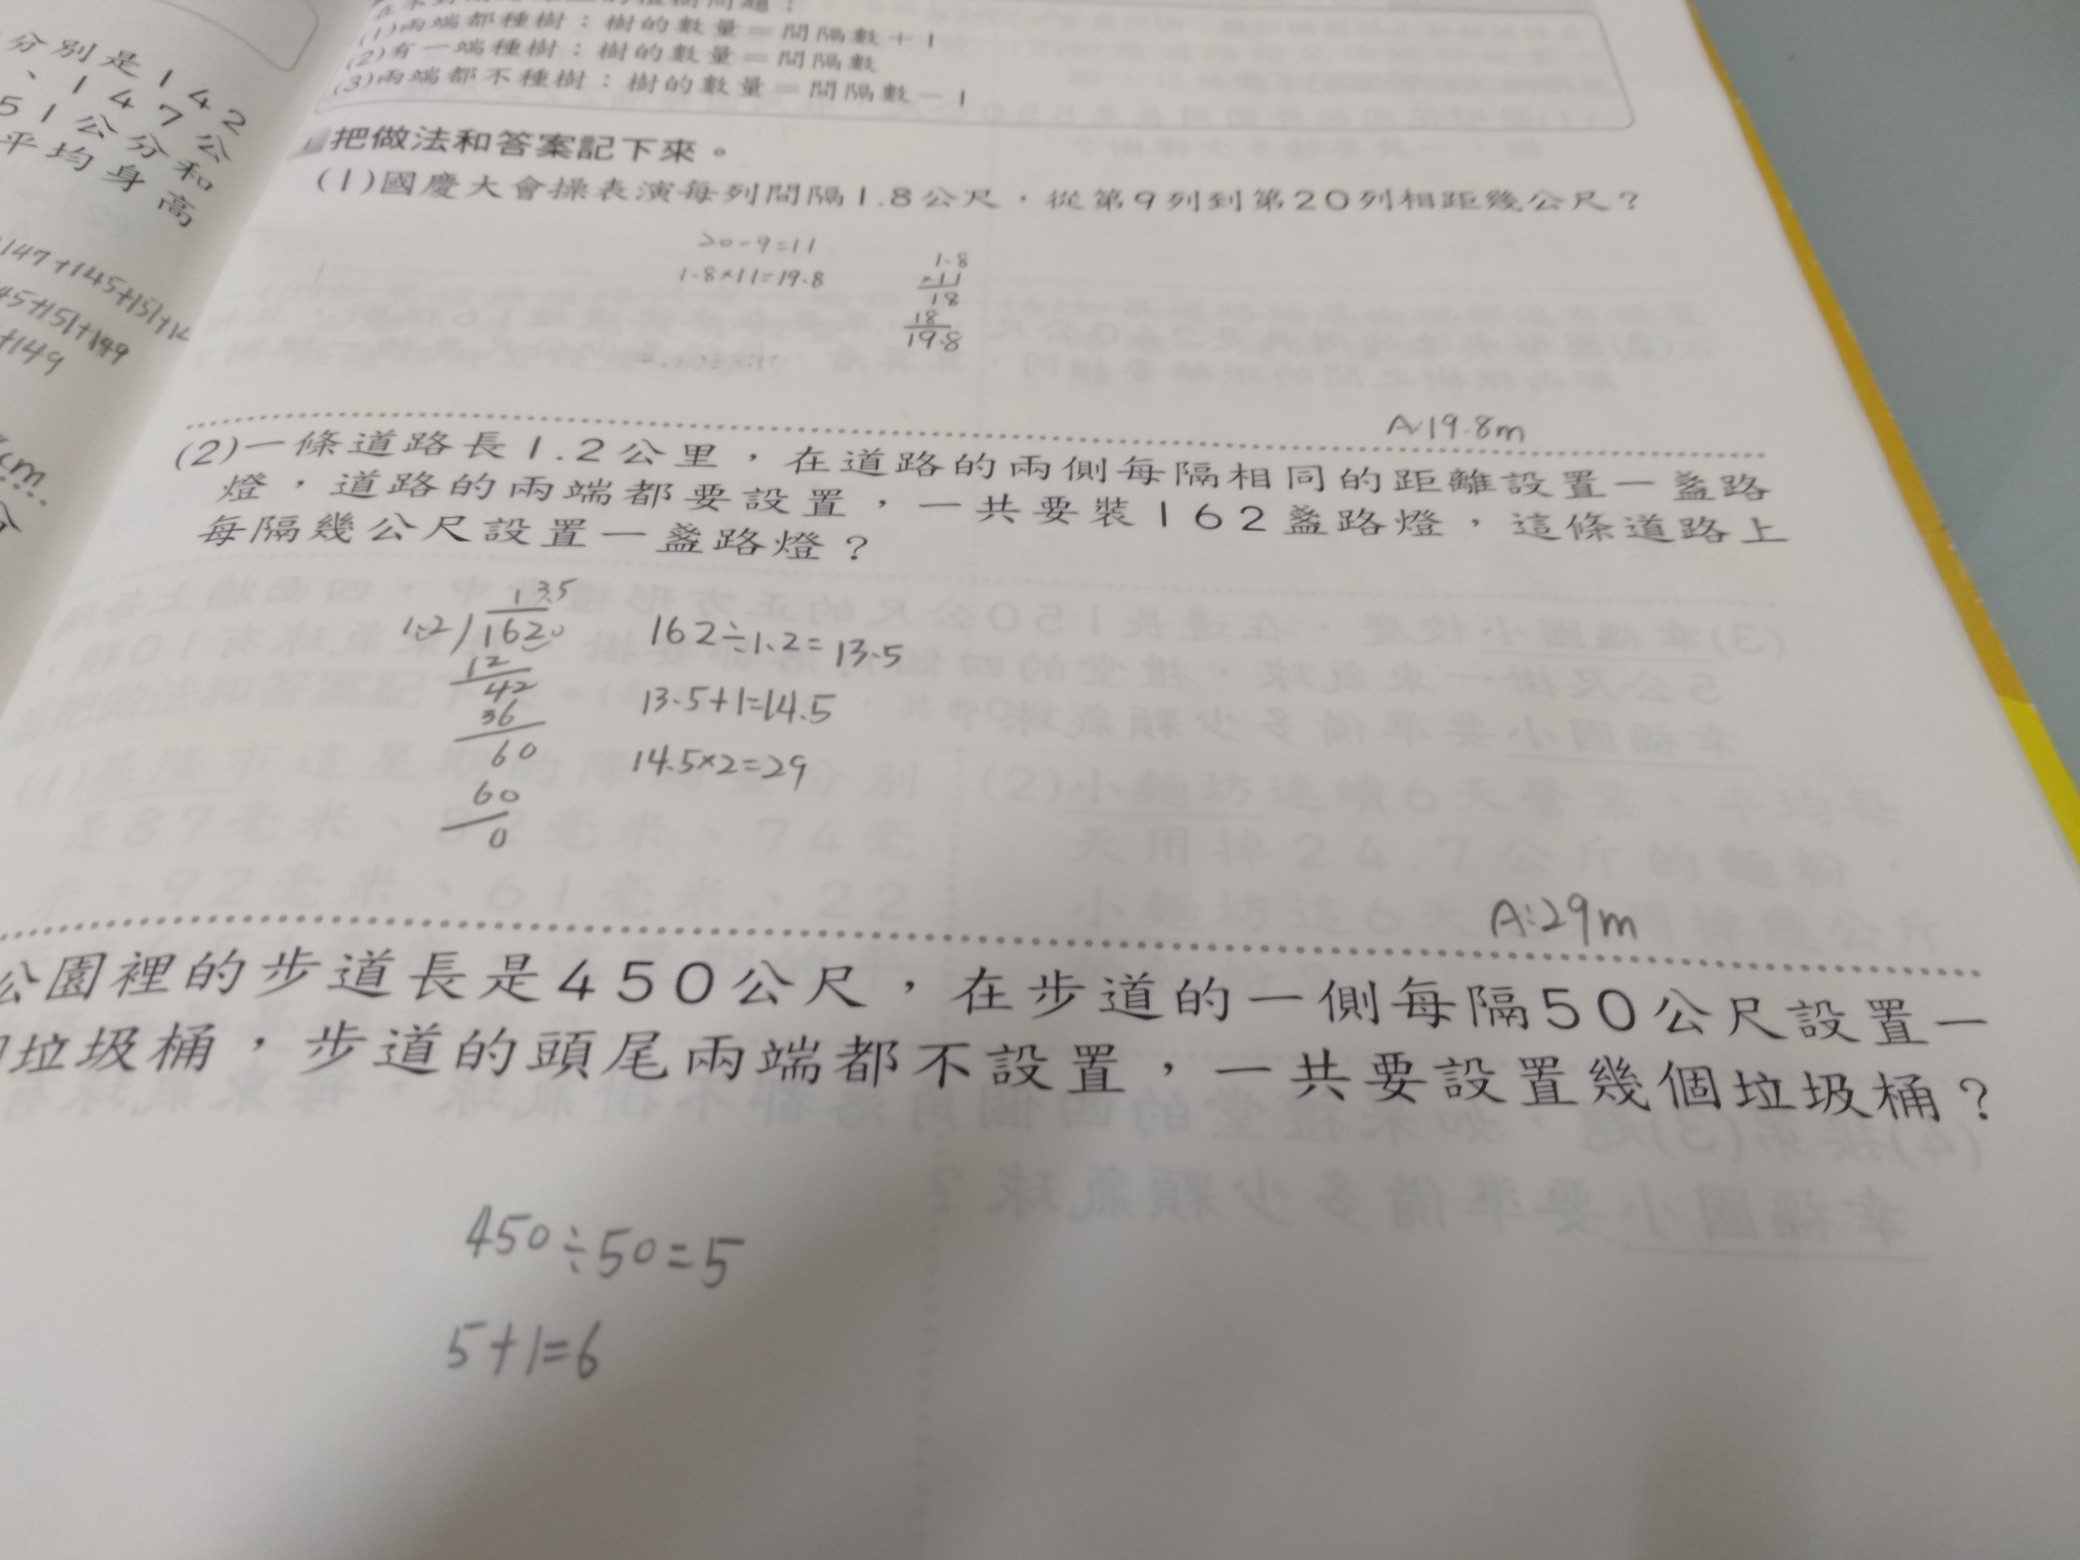 分別是142
、147公
51公分和
平均身高
147+145+151+14
45+151+149
+149
(1)兩端都種樹：樹的數量＝間隔數＋1
(2)有一端種樹：樹的數量＝間隔數
(3)兩端都不種樹：樹的數量＝間隔數－1
把做法和答案記下來。
(1)國慶大會操表演每列間隔1.8公尺，從第9列到第20列相距幾公尺？
20-9=11
1.8×11=19.8
1.8
×11
18
18
19.8
A:19.8m
(2)一條道路長1.2公里，在道路的兩側每隔相同的距離設置一盞路
燈，道路的兩端都要設置，一共要裝162盞路燈，這條道路上
每隔幾公尺設置一盞路燈？
13.5
1.2)1620
12
42
36
60
60
0
162÷1.2=13.5
13.5+1=14.5
14.5×2=29
A:29m
公園裡的步道長是450公尺，在步道的一側每隔50公尺設置一
垃圾桶，步道的頭尾兩端都不設置，一共要設置幾個垃圾桶？
450÷50=5
5+1=6